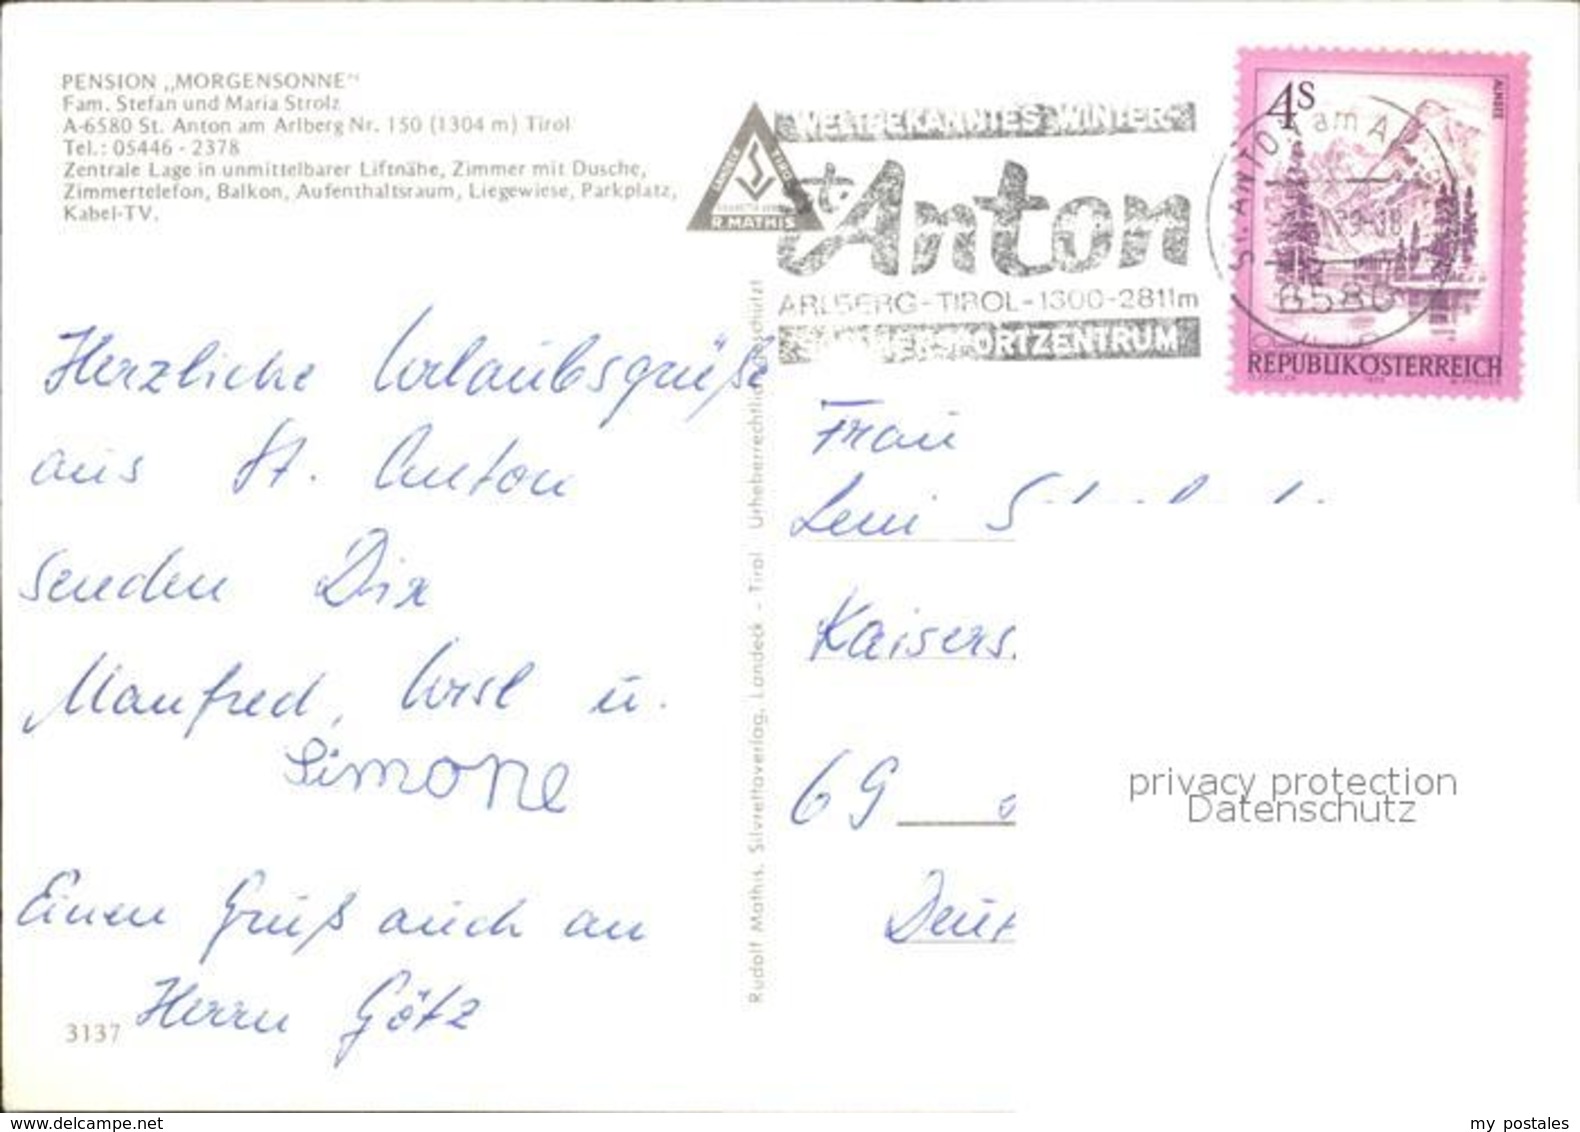 PENSION „MORGENSONNE“
Fam. Stefan und Maria Strolz
A-6580 St. Anton am Arlberg Nr. 150 (1304 m) Tirol
Tel.: 05446 - 2378
Zentrale Lage in unmittelbarer Liftnähe, Zimmer mit Dusche,
Zimmertelefon, Balkon, Aufenthaltsraum, Liegewiese, Parkplatz,
Kabel-TV.
R. MATHIS
WELTBEKANNTES WINTER-
St. Anton
ARLBERG-TIROL-1300-2811m
SOMMERSPORTZENTRUM
ST. ANTON am A
6580
4S
ALMSEE
REPUBLIK ÖSTERREICH
Herzliche Urlaubsgrüße
aus St. Anton
senden Dix
Manfred, Ursl u.
Simone
Einen Gruß auch an
Herrn Götz
3137
Rudolf Mathis, Silvrettaverlag, Landeck - Tirol Urheberrechtlich geschützt
Frau
Leni
Kaisers.
69
privacy protection
Datenschutz
www.delcampe.net
my postales